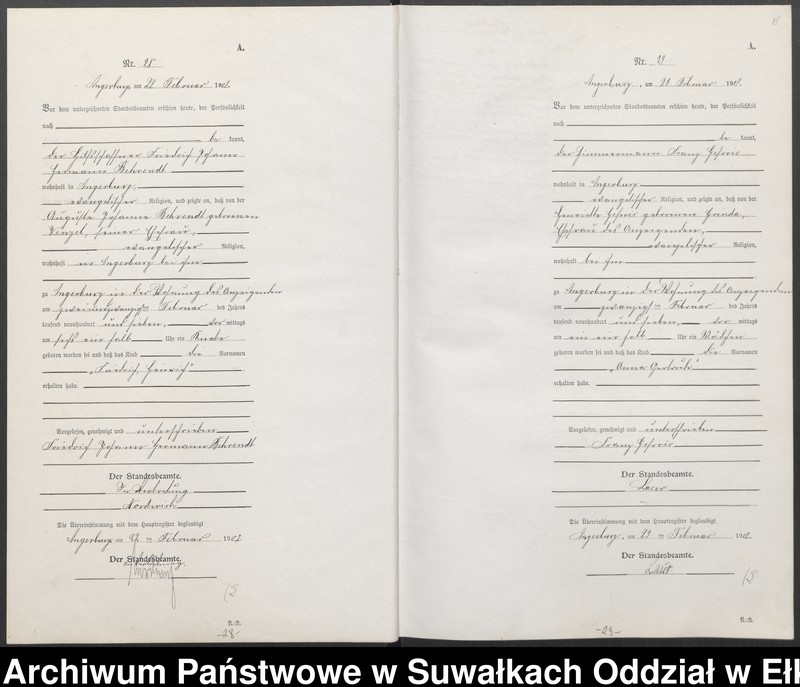 A.
Nr. 28
Angerburg, am 22 Februar 190
Vor dem unterzeichneten Standesbeamten erschien heute, der Persönlichkeit
nach
be kannt,
der Friedrich Johann
Hermann Behrendt
wohnhaft in Angerburg,
evangelischer Religion, und zeigte an, daß von der
Auguste Johanne Behrendt geborenen
Wenzel, seiner Ehefrau,
evangelischer Religion,
wohnhaft in Angerburg bei ihm
zu Angerburg in der Wohnung des Anzeigenden
am Februar des Jahres
tausend neunhundert und sieben, vor mittags
um ein halb Uhr ein Knabe
geboren worden sei und daß das Kind die Vornamen
„Friedrich Heinrich"
erhalten habe.
Vorgelesen, genehmigt und unterschrieben
Friedrich Johann Hermann Behrendt
Der Standesbeamte.
In Vertretung
Die Übereinstimmung mit dem Hauptregister beglaubigt
Angerburg, am 22 ten Februar 190
Der Standesbeamte.
In Vertretung
-28-
A.
Nr. 29
Angerburg, am Februar 190
Vor dem unterzeichneten Standesbeamten erschien heute, der Persönlichkeit
nach
be kannt,
der Zimmermann Franz
wohnhaft in Angerburg
evangelischer Religion, und zeigte an, daß von der
Henriette geborenen
Ehefrau des Anzeigenden,
evangelischer Religion,
wohnhaft bei ihm
zu Angerburg in der Wohnung des Anzeigenden
am Februar des Jahres
tausend neunhundert und sieben, vor mittags
um ein halb Uhr ein Mädchen
geboren worden sei und daß das Kind die Vornamen
„Anna Gertrude"
erhalten habe.
Vorgelesen, genehmigt und unterschrieben
Franz
Der Standesbeamte.
Die Übereinstimmung mit dem Hauptregister beglaubigt
Angerburg, am ten Februar 190
Der Standesbeamte.
-29-
Archiwum Państwowe w Suwałkach Oddział w Eł